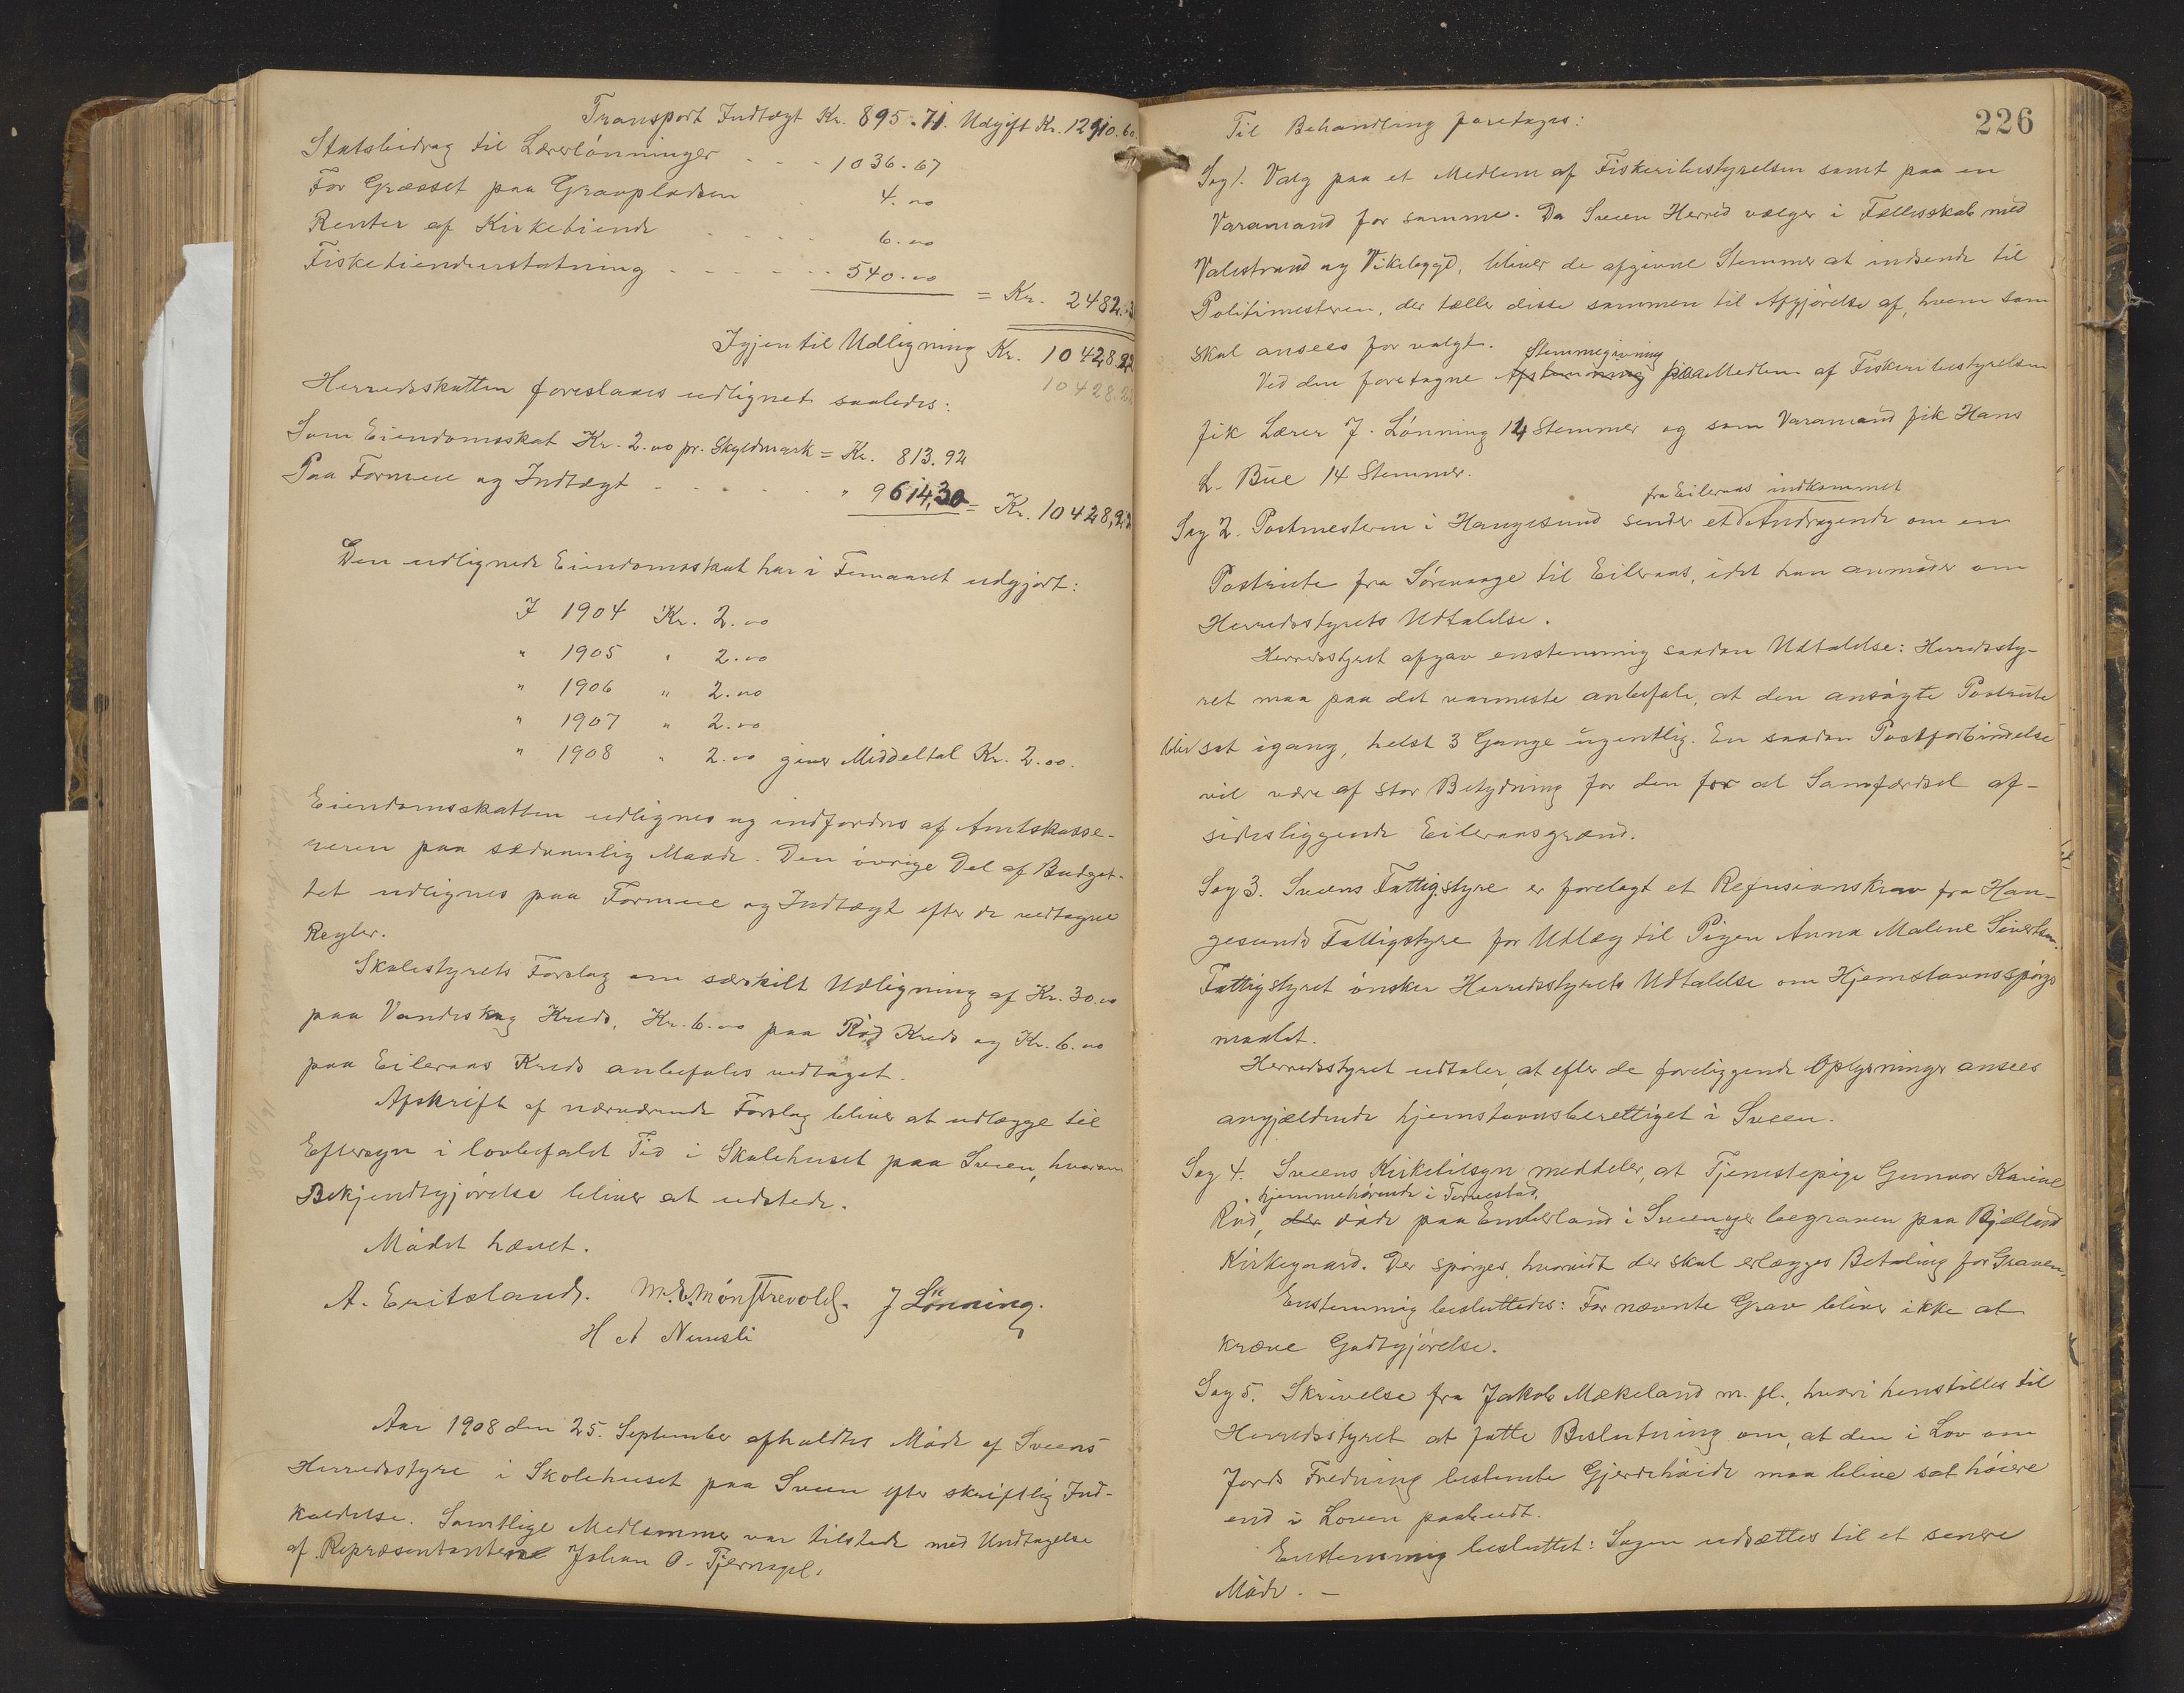 Transport Indtægt Kr. 895.71. Udgift Kr. 12910.60
Statsbidrag til Lærerlönninger - - - 1036.67
For Græsset paa Gravpladsen 4.00
Renter af Kirketiende - - - - 6.00
Fisketiendeerstatning - - - - - - 540.00
= Kr. 2482.3
Igjen til Udligning Kr. 10428.22
10428.22
Herredsskatten foreslaaes udlignet saaledes:
Som Eiendomsskat Kr. 2.00 pr. Skyldmark = Kr. 813.92
Paa Formue og Indtægt - - - - - " 9614,30 = Kr. 10428,22
Den udlignede Eiendomsskat har i Femaaret udgjort:
I 1904 Kr. 2.00
" 1905 " 2.00
" 1906 " 2.00
" 1907 " 2.00
" 1908 " 2.00 giver Middeltal Kr. 2.00.
Eiendomsskatten udlignes og indfordres af Amtskasse-
reren paa sædvanlig Maade. Den övrige Del af Budget-
tet udlignes paa Formue og Indtægt efter de vedtagne
Regler.
Skolestyrets Forslag om særskilt Udligning af Kr. 30.00
paa Vandeskog Kreds, Kr. 6.00 paa Röd Kreds og Kr. 6.00
paa Eileraas Kreds anbefales vedtaget.
Afskrift af nærværende Forslag bliver at udlægge til
Eftersyn i lovbefalet Tid i Skolehuset paa Sveen, hvorom
Bekjendtgjörelse bliver at udstede.
Mödet hævet.
A. Eritsland. M. E. Mönstrevold. J Lönning.
H A Nernsli
Aar 1908 den 25. September afholdtes Möde af Sveens
Herredsstyre i Skolehuset paa Sveen efter skriftlig Ind-
kaldelse. Samtlige Medlemmer var tilstede med Undtagelse
af Repræsentanterne Johan O. Tjernagel.
226
Til Behandling foretages:
Sag 1. Valg paa et Medlem af Fiskeribestyrelsen samt paa en
Varamand for samme. Da Sveen Herred vælger i Fællesskab med
Valestrand og Vikebygd, bliver de afgivne Stemmer at indsende til
Politimesteren, der tæller disse sammen til Afgjörelse af, hvem som
skal ansees for valgt.
Stemmegivning
Ved den foretagne Afstemning paa Medlem af Fiskeribestyrelsen
fik Lærer J. Lönning 14 Stemmer og som Varamand fik Hans
L. Bue 14 Stemmer.
fra Eileraas indkommet
Sag 2. Postmesteren i Haugesund sender et Andragende om en
Postrute fra Sörevaage til Eileraas, idet han anmoder om
Herredsstyrets Udtalelse.
Herredsstyret afgav enstemmig saadan Udtalelse: Herredssty-
ret maa paa det varmeste anbefale, at den ansögte Postrute
blir sat igang, helst 3 Gange ugentlig. En saadan Postforbindelse
vil være af stor Betydning for den for al Samfærdsel af-
sidesliggende Eileraasgrænd.
Sag 3. Sveens Fattigstyre er forelagt et Refusionskrav fra Hau-
gesunds Fattigstyre for Udlæg til Pigen Anna Malene Sivertsen.
Fattigstyret önsker Herredsstyrets Udtalelse om Hjemstavnsspörgs
maalet.
Herredsstyret udtaler, at efter de foreliggende Oplysninger ansees
angjældende hjemstavnsberettiget i Sveen.
Sag 4. Sveens Kirketilsyn meddeler, at Tjenestepige Gunvor Karine
hjemmehörende i Tornestad,
Röd, der döde paa Emberland i Sveen, er begraven paa Bjelland
Kirkegaard. Der spörges, hvorvidt der skal erlægges Betaling for Graven.
Enstemmig besluttedes: For nævnte Grav bliver ikke at
kræve Godtgjörelse.
Sag 5. Skrivelse fra Jakob Mækeland m. fl., hvori henstilles til
Herredsstyret at fatte Beslutning om, at den i Lov om
Jords Fredning bestemte Gjerdehöide maa blive sat höiere
end i Loven paabudt.
Enstemmig besluttet: Sagen udsættes til et senere
Möde. -